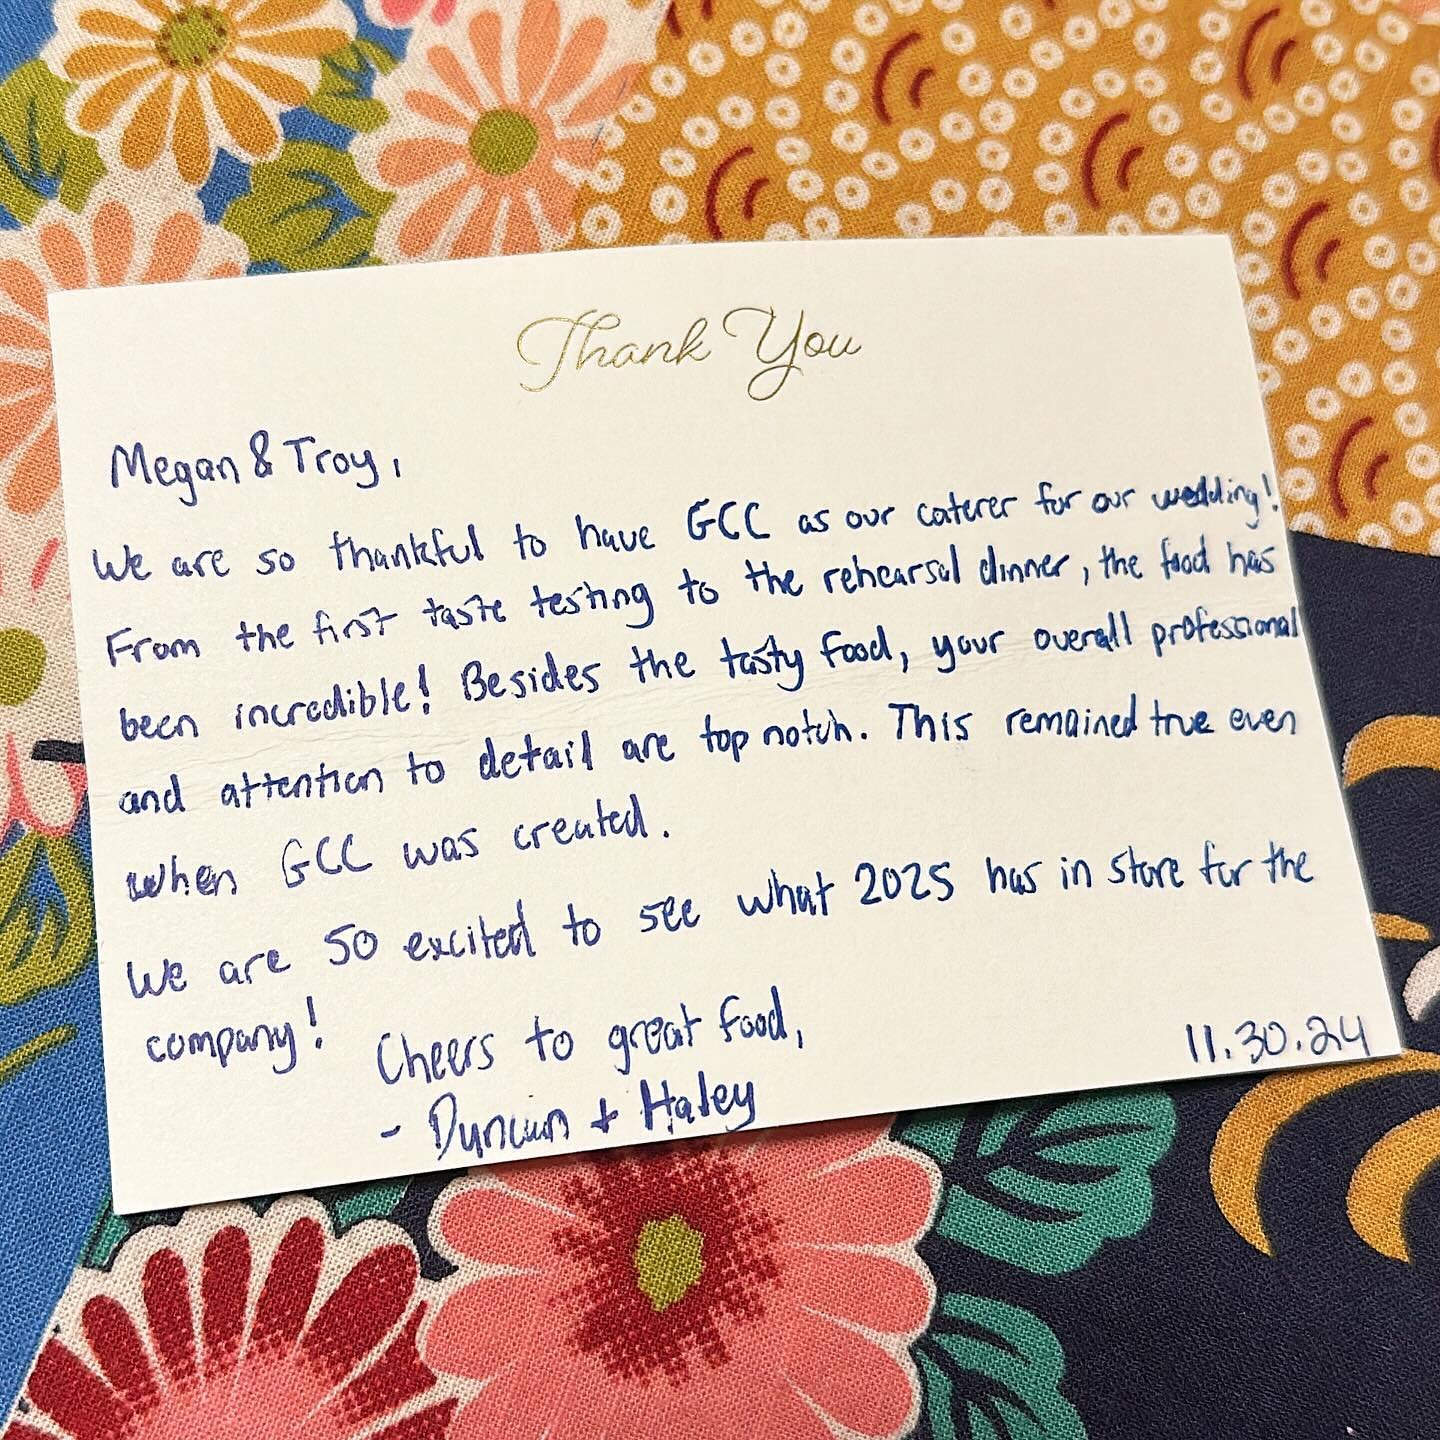 Thank You
Megan & Troy,
We are so thankful to have GCC as our caterer for our wedding!
From the first taste testing to the rehearsal dinner, the food has
been incredible! Besides the tasty food, your overall professional
and attention to detail are top notch. This remained true even
when GCC was created.
We are SO excited to see what 2025 has in store for the
company!
Cheers to great food,
- Duncan + Haley
11.30.24